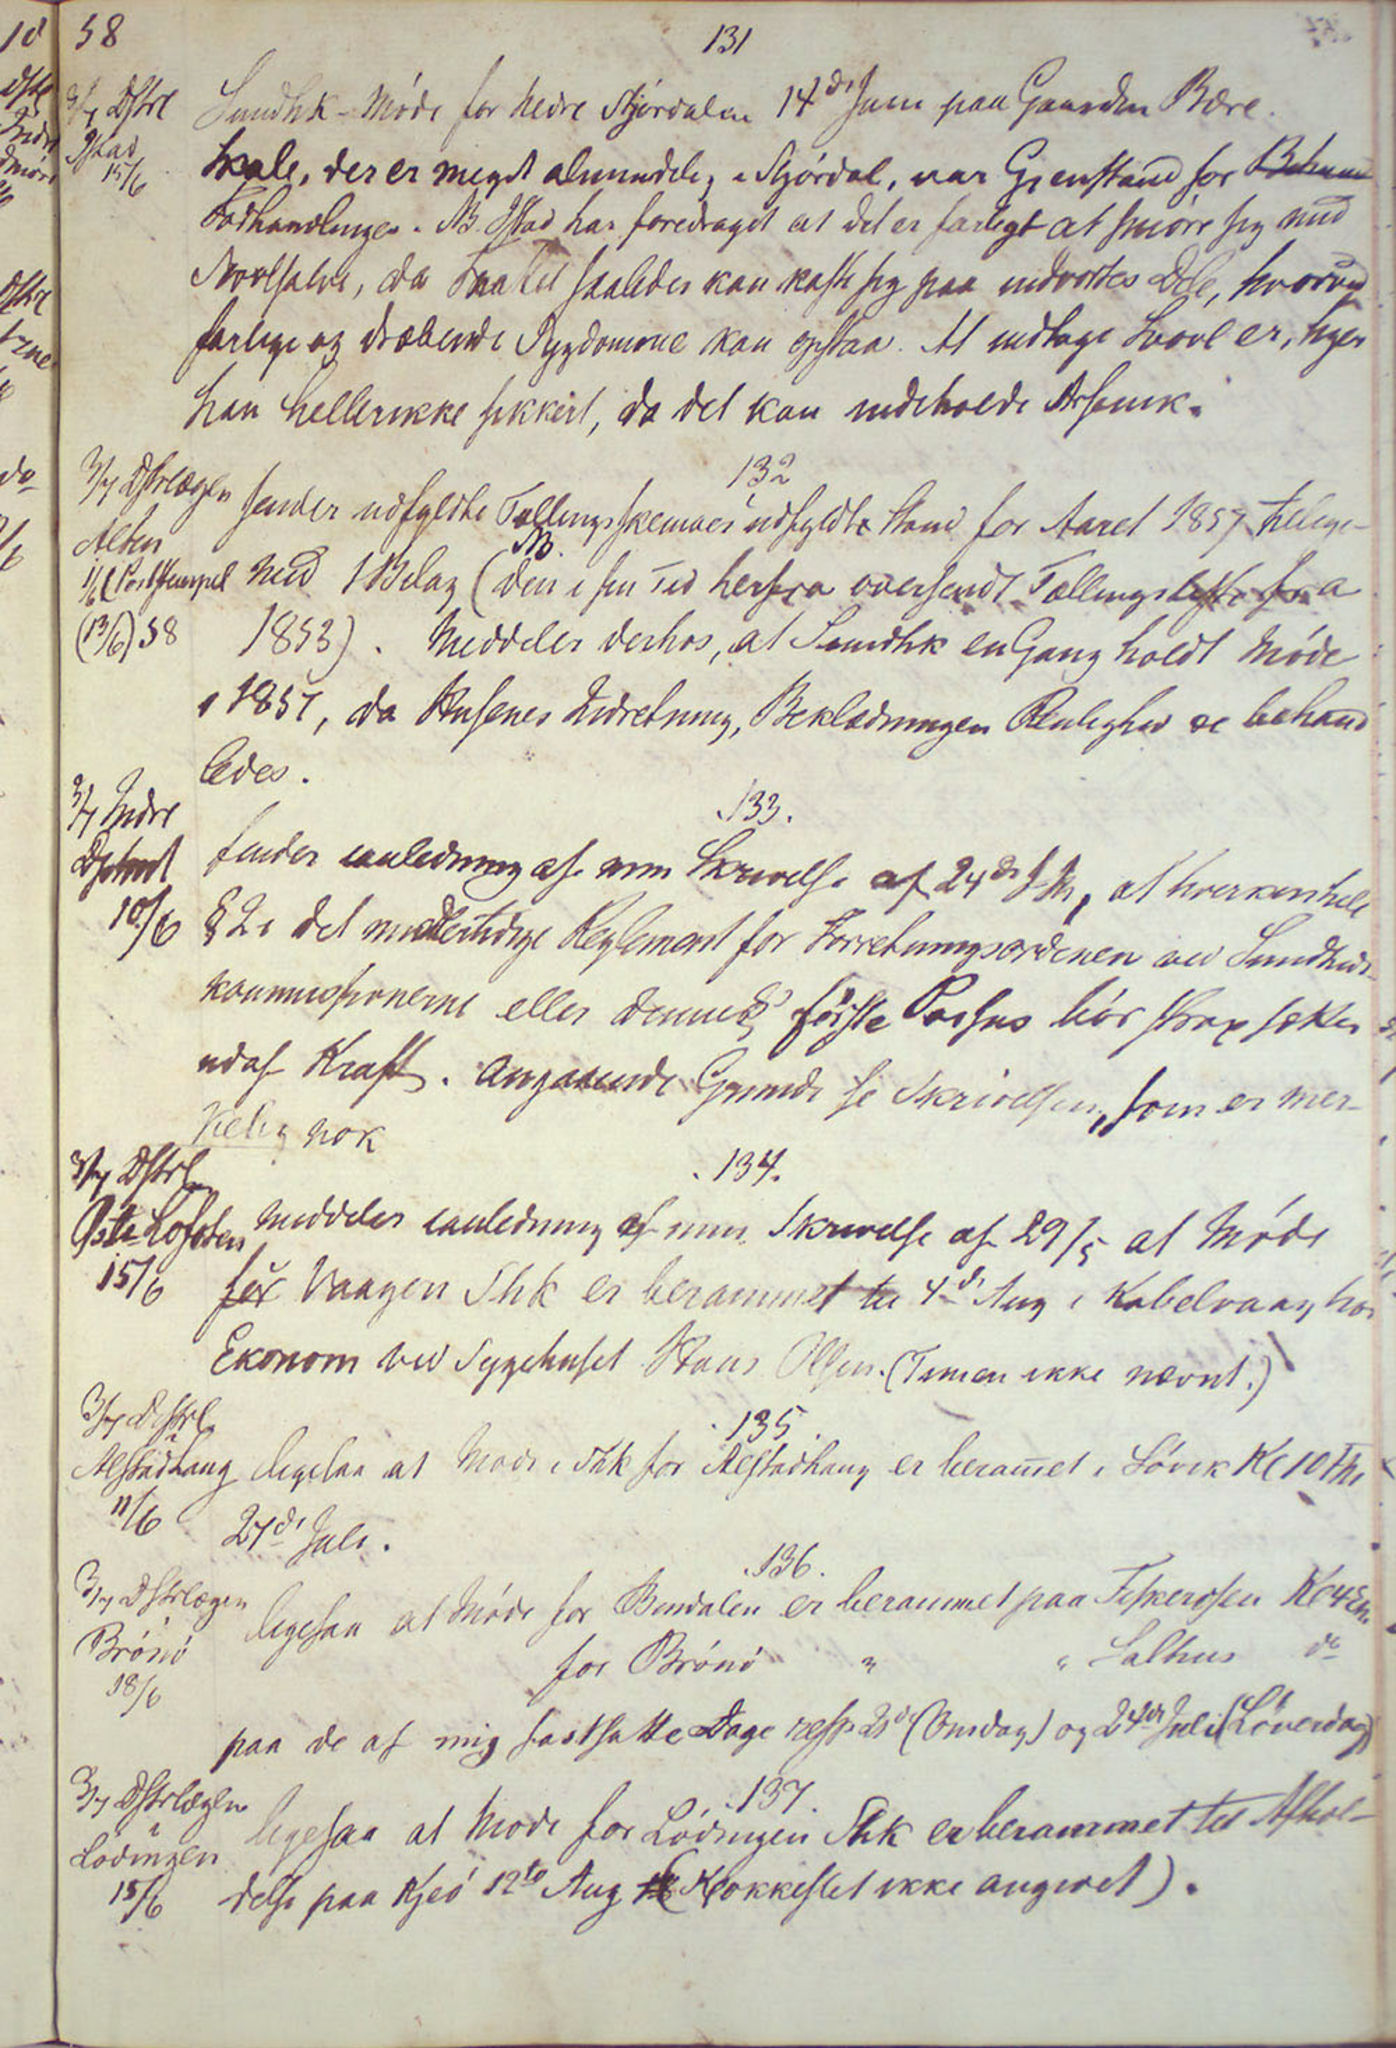 58
131
3/7 Dstrl
Istad
15/6
Sundhk-Møde for nedre Stjørdalen 14de Juni paa Gaarden Bære.
Skale, der er meget almindelig i Stjørdal, var Gjenstand for
Forhandlinger. NB. Istad har foredraget at det er farligt at smøre sig med
Svovlsalve, da saaledes kan kaste sig paa indvortes Dele, hvorved
farlige og dræbende Sygdomme kan opstaa. At indtage Svovl er, siger
han hellerikke sikkert, da det kan indeholde Arsenik.
132
3/7 Dstrlægen
Alten
11/6 (Poststempel
(13/6) 58
sender udfyldte Tællingsskemaer i udfyldt Stand for Aaret 1857 tillige
NB.
med 1 Bilag (den i sin Tid herfra oversendt Tællingsliste fra
1853). Meddeler derhos, at Sundhk en Gang holdt Møde
i 1857, da Husenes Indretning, Beklædningen Renlighed &c behand
ledes.
133.
3/7 Indre
Dptmt
10/6
sender i anledning af min Skrivelse af 24de f. M, at hverken hele
§ 2 i det midlertidige Reglement for Forretningsordenen ved Sundheds-
kommissionerne eller dennes første Passus bør strax sættes
ud af Kraft. Angaaende Grunde se Skrivelsen, som er mer-
kelig nok
134.
3/7 Dstrl
Øst-Lofoten
15/6
meddeler i anledning af min Skrivelse af 29/5 at Møde
for Vaagen Shk er berammet til 4de Aug i Kabelvaag hos
Ekonom ved Sygehuset Hans Olsen. (Timen ikke nævnt.)
135.
3/7 Dstrl
i
Alstadhaug
11/6
ligesaa at Møde i Shk for Alstadhaug er berammet i Søvik Kl 10 Fm
27de Juli.
136.
3/7 Dstrlægen
Brønø
18/6
ligesaa at Møde for Bindalen er berammet paa Terskerosen Kl 4 Em
for Brønø " " Salhus do
paa de af mig fastsatte Dage resp. 21de (Onsdag) og 24de Juli (Løverdag)
137.
3/7 Dstrlægen
i
Lødingen
15/6
ligesaa at Møde for Lødingen Shk er berammet til Afhol-
delse paa Kjeø 12te Aug (Klokkeslet ikke angivet).